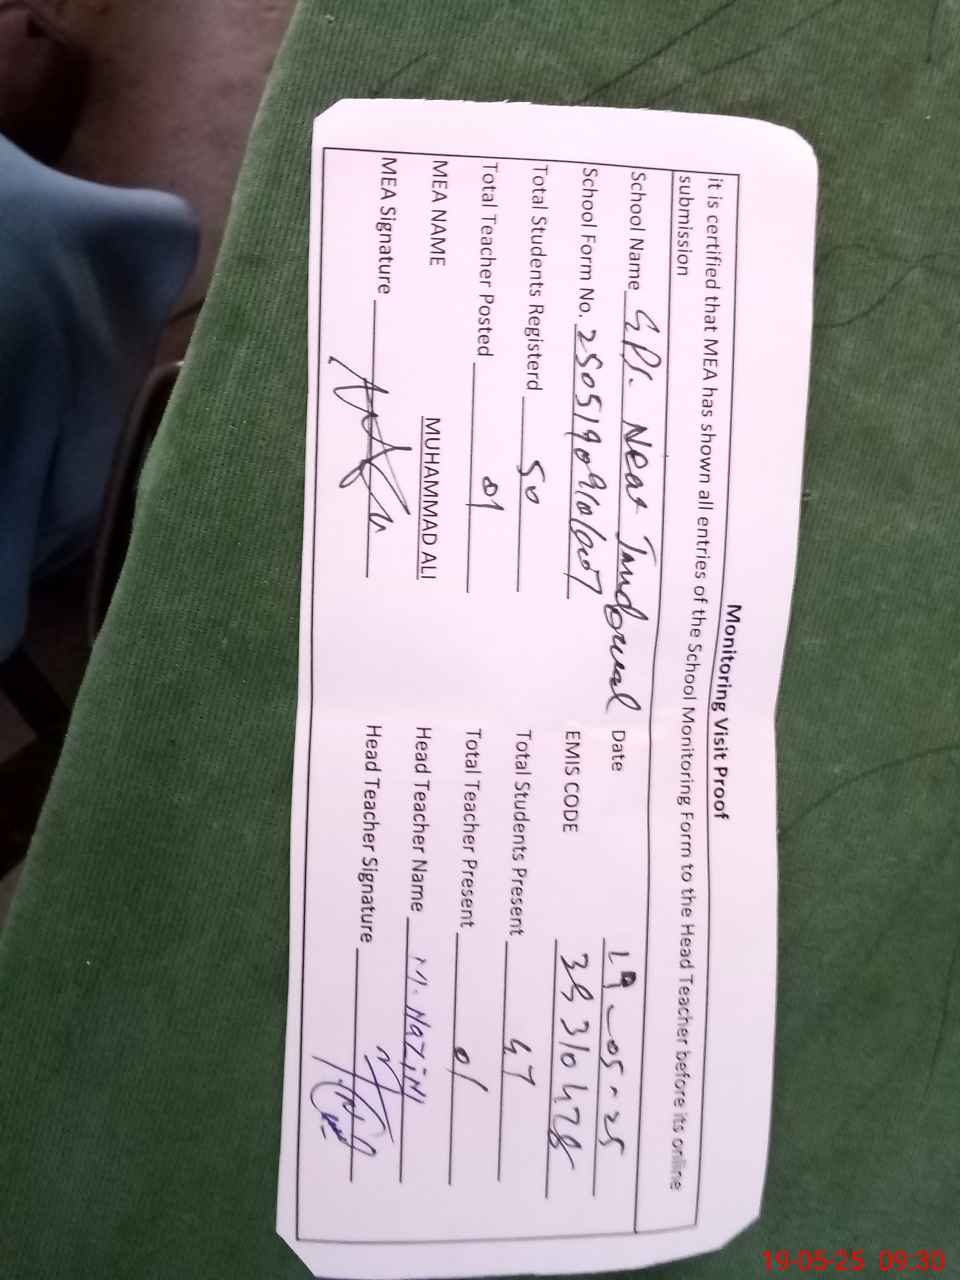 Monitoring Visit Proof
it is certified that MEA has shown all entries of the School Monitoring Form to the Head Teacher before its online
submission
School Name GPS. Near Tandowal Date 19-05-25
School Form No. EMIS CODE 35310478
Total Students Registerd 50 Total Students Present 47
Total Teacher Posted 01 Total Teacher Present 01
MEA NAME MUHAMMAD ALI Head Teacher Name M. Nazim
MEA Signature Head Teacher Signature
19-05-25 09:30